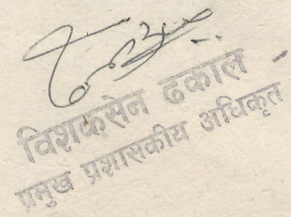 विशकसेन ढकाल
प्रमुख प्रशासकीय अधिकृत